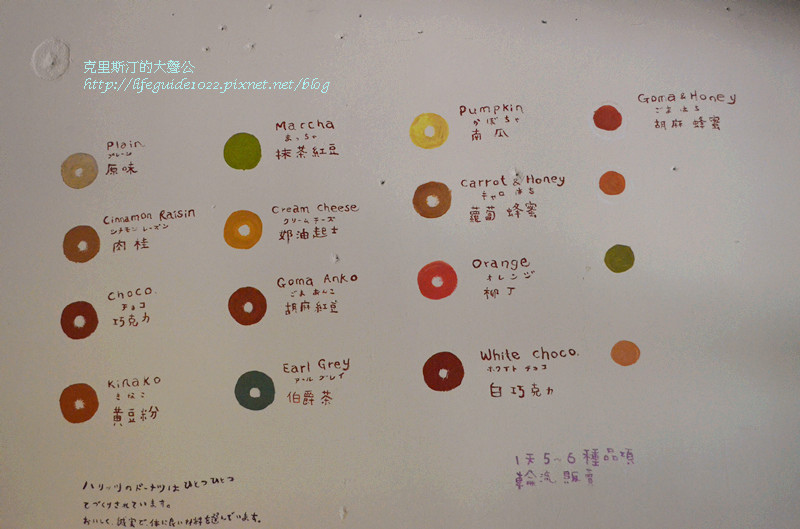 克里斯汀的大聲公
http://lifeguide1022.pixnet.net/blog
Plain
プレーン
原味
Cinnamon Raisin
シナモン レーズン
肉桂
Choco.
チョコ
巧克力
Kinako
きなこ
黃豆粉
Maccha
まっちゃ
抹茶紅豆
Cream Cheese
クリーム チーズ
奶油起士
Goma Anko
ごま あんこ
胡麻紅豆
Earl Grey
アール グレイ
伯爵茶
Pumpkin
かぼちゃ
南瓜
Carrot & Honey
キャロ はち
蘿蔔 蜂蜜
Orange
オレンジ
柳丁
White choco.
ホワイト チョコ
白巧克力
Goma & Honey
ごま はち
胡麻 蜂蜜
1天5~6種品項
輪流 販賣
ハリッツのドーナツは ひとつひとつ
てづくりされています。
おいしく、誠実で、体に良い材料を選んでいます。